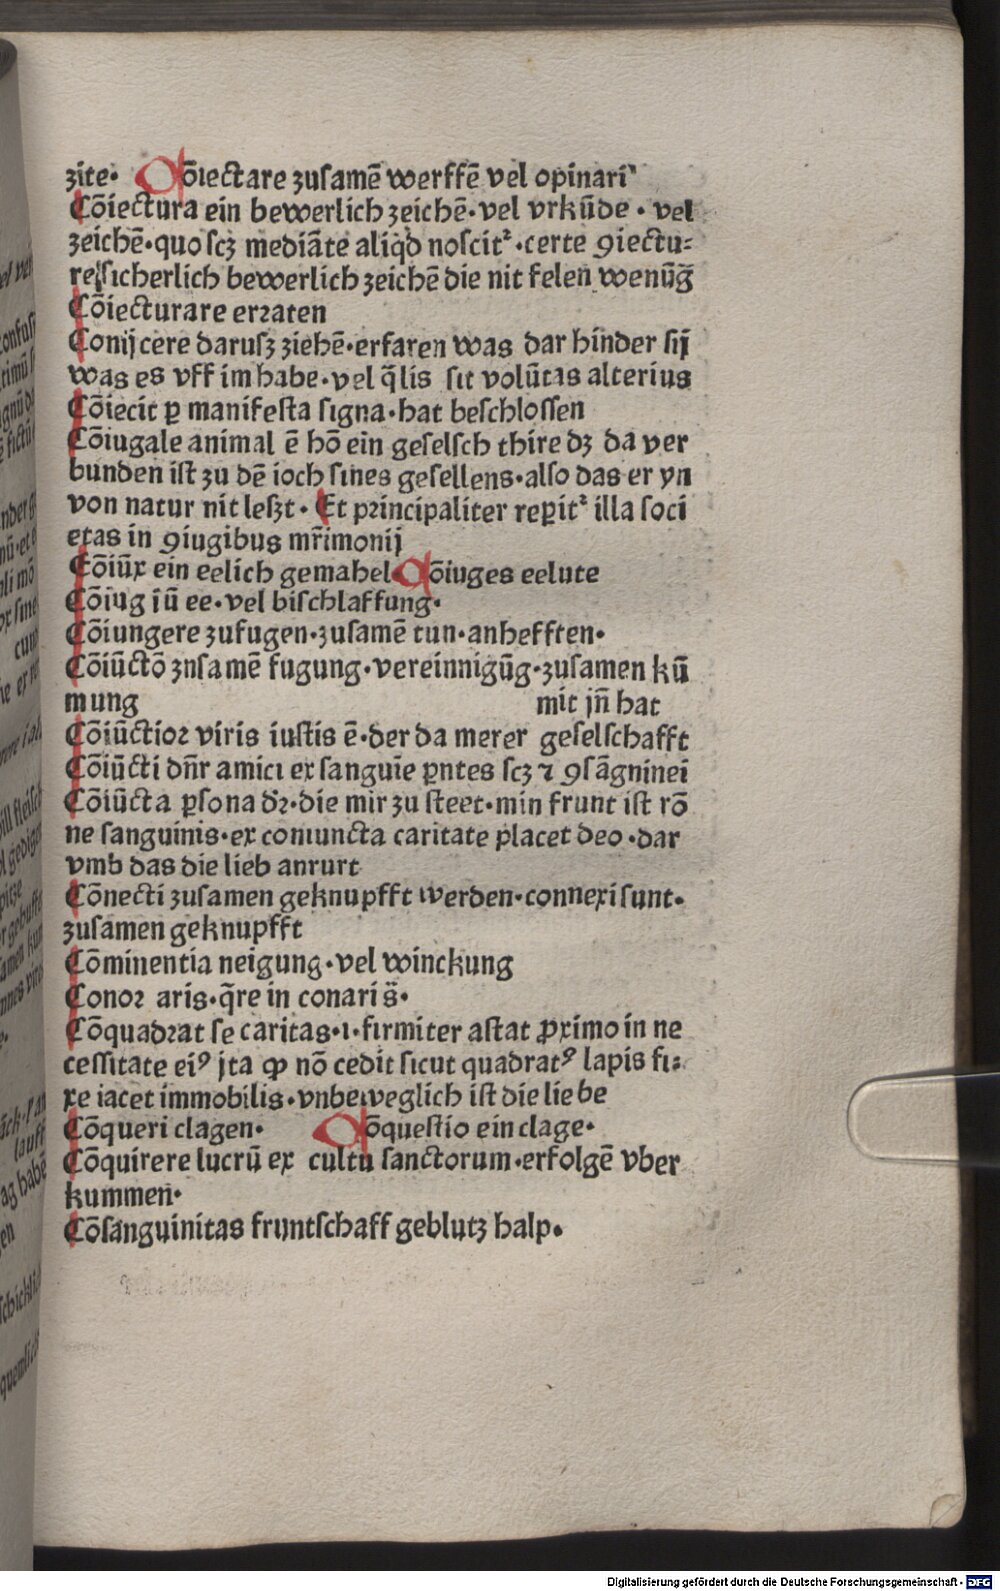 zite· Cōiectare zuſamē werffē vel opinari
Cōiectura ein bewerlich zeichē·vel vrkūde·vel
zeichē·quo ſcꝫ mediāte aliqd noſcitᷣ·certe ꝯiectu⸗
re ſicherlich bewerlich zeichē die nit felen wenūg̅
Cōiecturare erꝛaten
Conijcere daruſz ziehē·erfaren was dar hinder ſij
was es vff im habe·vel q̄lis ſit volūtas alterius
Cōiecit ꝑ manifeſta ſigna·hat beſchloſſen
Cōiugale animal ē hō ein geſelſch thire dꝫ da ver
bunden iſt zu dē ioch ſines geſellens·alſo das er yn
von natur nit leſzt·Et pꝛincipaliter reꝑitᷣ illa ſoci
etas in ꝯiugibus mr̄imonij
Cōiūx ein eelich gemahel·Cōiuges eelute
Cōiug iū ee·vel biſchlaffung·
Cōiungere zufugen·zuſamē tun·anhefften·
Cōiūctō znſamē fugung·vereinnigūg·zuſamen kū
mung mit jn̄ hat
Cōiūctioꝛ viris iuſtis ē·der da merer geſelſchafft
Cōiūcti dn̄r amici ex ſanguīe ꝑntes ſcꝫ ⁊ ꝯſāgninei
Cōiūcta ꝑſona dꝛ̄·die mir zu ſteet·min frunt iſt rō
ne ſanguinis·ex coniuncta caritate placet deo·dar
vmb das die lieb anrurt
Cōnecti zuſamen geknupfft werden·connexi ſunt·
zuſamen geknupfft
Cōminentia neigung·vel winckung
Conoꝛ aris·q̄re in conari s̄·
Cōquadꝛat ſe caritas·i·firmiter aſtat ꝓximo in ne
ceſſitate eiꝰ jta ꝙ nō cedit ſicut quadratꝰ lapis fi⸗
xe iacet immobilis·vnbeweglich iſt die lie be
Cōqueri clagen· Cōqueſtio ein clage·
Cōquirere lucrū ex cultu ſanctorum·erfolgē vber
kummen·
Cōſanguinitas fruntſchaff geblutz halp·
Digitalisierung gefördert durch die Deutsche Forschungsgemeinschaft - DFG